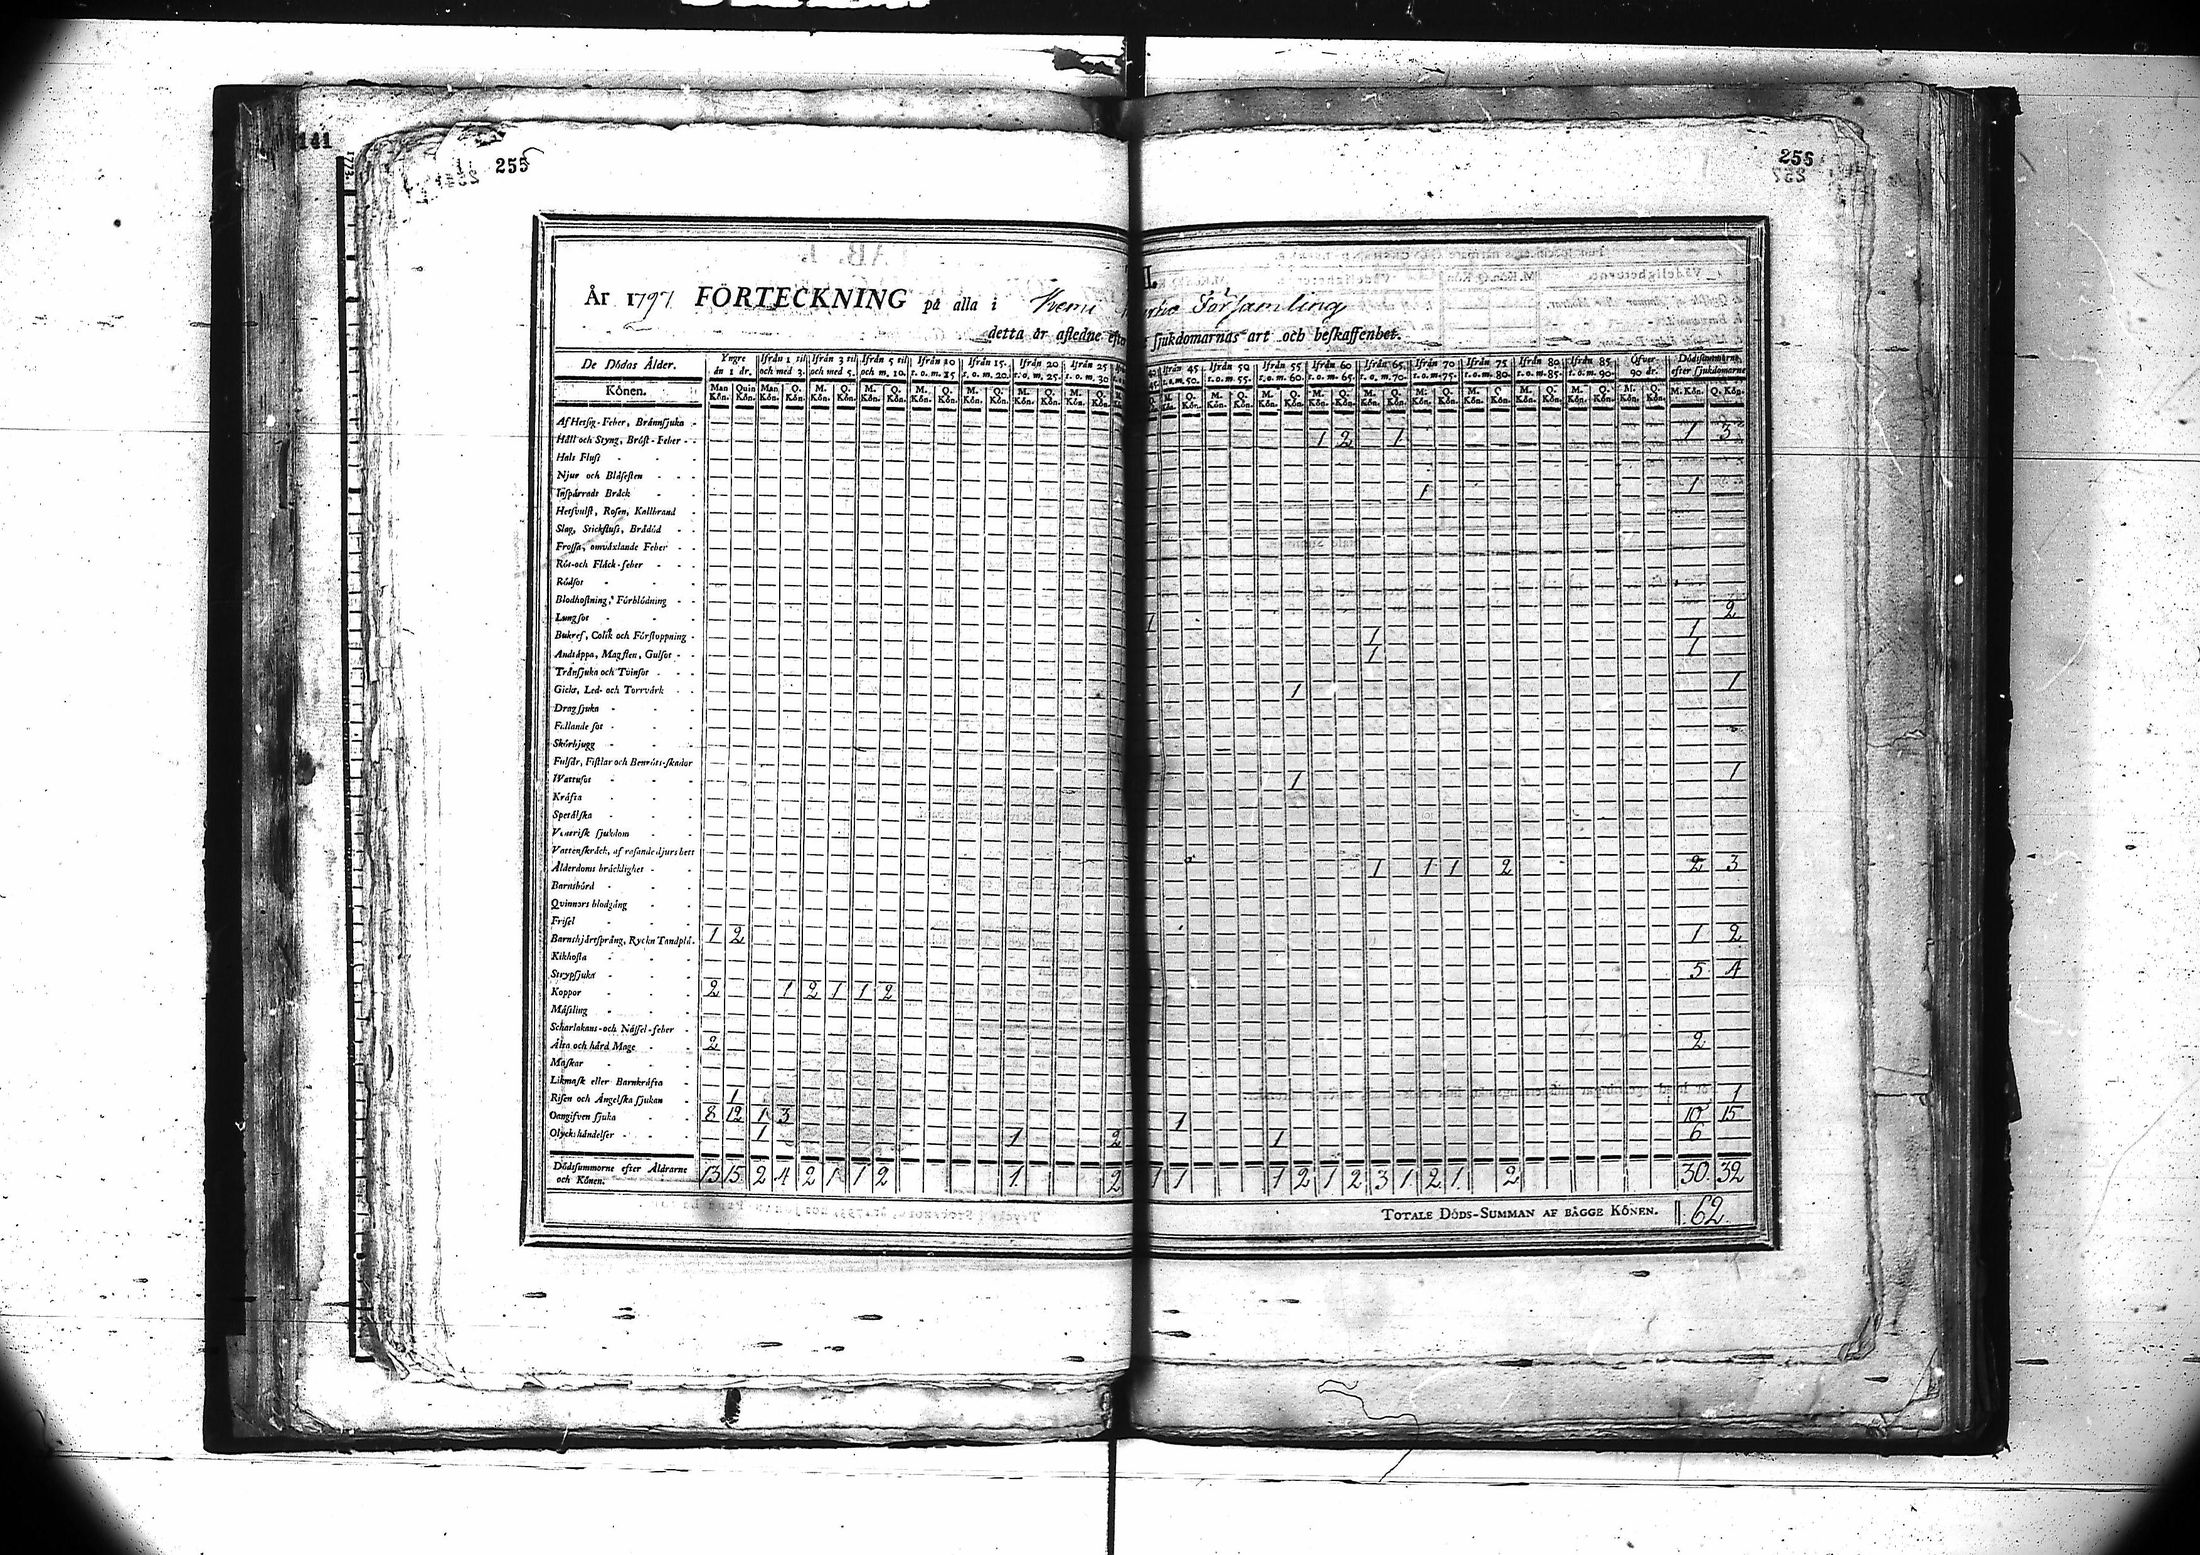 141
255
255
År 1797 FÖRTECKNING på alla i Kemi Församling
detta år afledne efter sjukdomarnas art och beskaffenhet.
De Dödas Ålder. Yngre än 1 år. Ifrån 1 til och med 3. Ifrån 3 til och med 5. Ifrån 5 til och m. 10. Ifrån 10 t. o. m. 15. Ifrån 15. t. o. m. 20. Ifrån 20 t. o. m. 25. Ifrån 25 t. o. m. 30 Ifrån 45 t. o. m. 50. Ifrån 50 t. o. m. 55. Ifrån 55 t. o. m. 60. Ifrån 60 t. o. m. 65. Ifrån 65 t. o. m. 70. Ifrån 70 t. o. m. 75. Ifrån 75 t. o. m. 80. Ifrån 80 t. o. m. 85. Ifrån 85 t. o. m. 90. Öfver 90 år. Dödssummorne efter sjukdomarne
Könen. Man Kön. Quin Kön. Man Kön. Q. Kön. M. Kön. Q. Kön. M. Kön. Q. Kön. M. Kön. Q. Kön. M. Kön. Q. Kön. M. Kön. Q. Kön. M. Kön. Q. Kön. M. Kön. Q. Kön.
Af Hetsig-Feber, Brännsjuka
Håll och Styng, Bröst-Feber 1 2 1 1 3
Hals Fluss
Njur och Blåsesten
Inspärrade Bråck 1 1
Hetsvulst, Rosen, Kallbrand
Slag, Stickfluss, Brådöd
Frossa, omväxlande Feber
Röt-och Fläck-feber
Rödsot
Blodhostning, Förblödning
Lungsot 1 2
Bukref, Colik och Förstoppning 1 1
Andtäppa, Magsten, Gulsot 1 1
Tränsjuka och Tvinsot
Gickt, Led- och Torrvärk 1 1
Dragsjuka
Fallande sot
Skörbjugg
Fulsår, Fistlar och Benröts-skador
Wattusot 1 1
Kräfta
Spetälska
Venerisk sjukdom
Vattenskräck, af rasande djurs bett
Ålderdoms bräcklighet 1 1 1 2 2 3
Barnsbörd
Qvinnors blodgång
Frisel
Barnshjärtsprång, Ryckn Tandplå. 1 2 1 2
Kikhosta
Strypsjuka
Koppor 2 1 2 1 1 2 5 4
Mässling
Scharlakans-och Nässel-feber
Älta och hård Mage 2 2
Maskar
Likmask eller Barnkräfta
Risen och Ängelska sjukan 1 1
Oangifven sjuka 8 12 1 3 1 10 15
Olyckshändelser 1 1 2 1 6
Dödssummorne efter Åldrarne och Könen. 13 15 2 4 2 1 1 2 1 2 1 1 1 2 1 2 3 1 2 1 2 30 32
TOTALE DÖDS-SUMMAN AF BÄGGE KÖNEN. 62